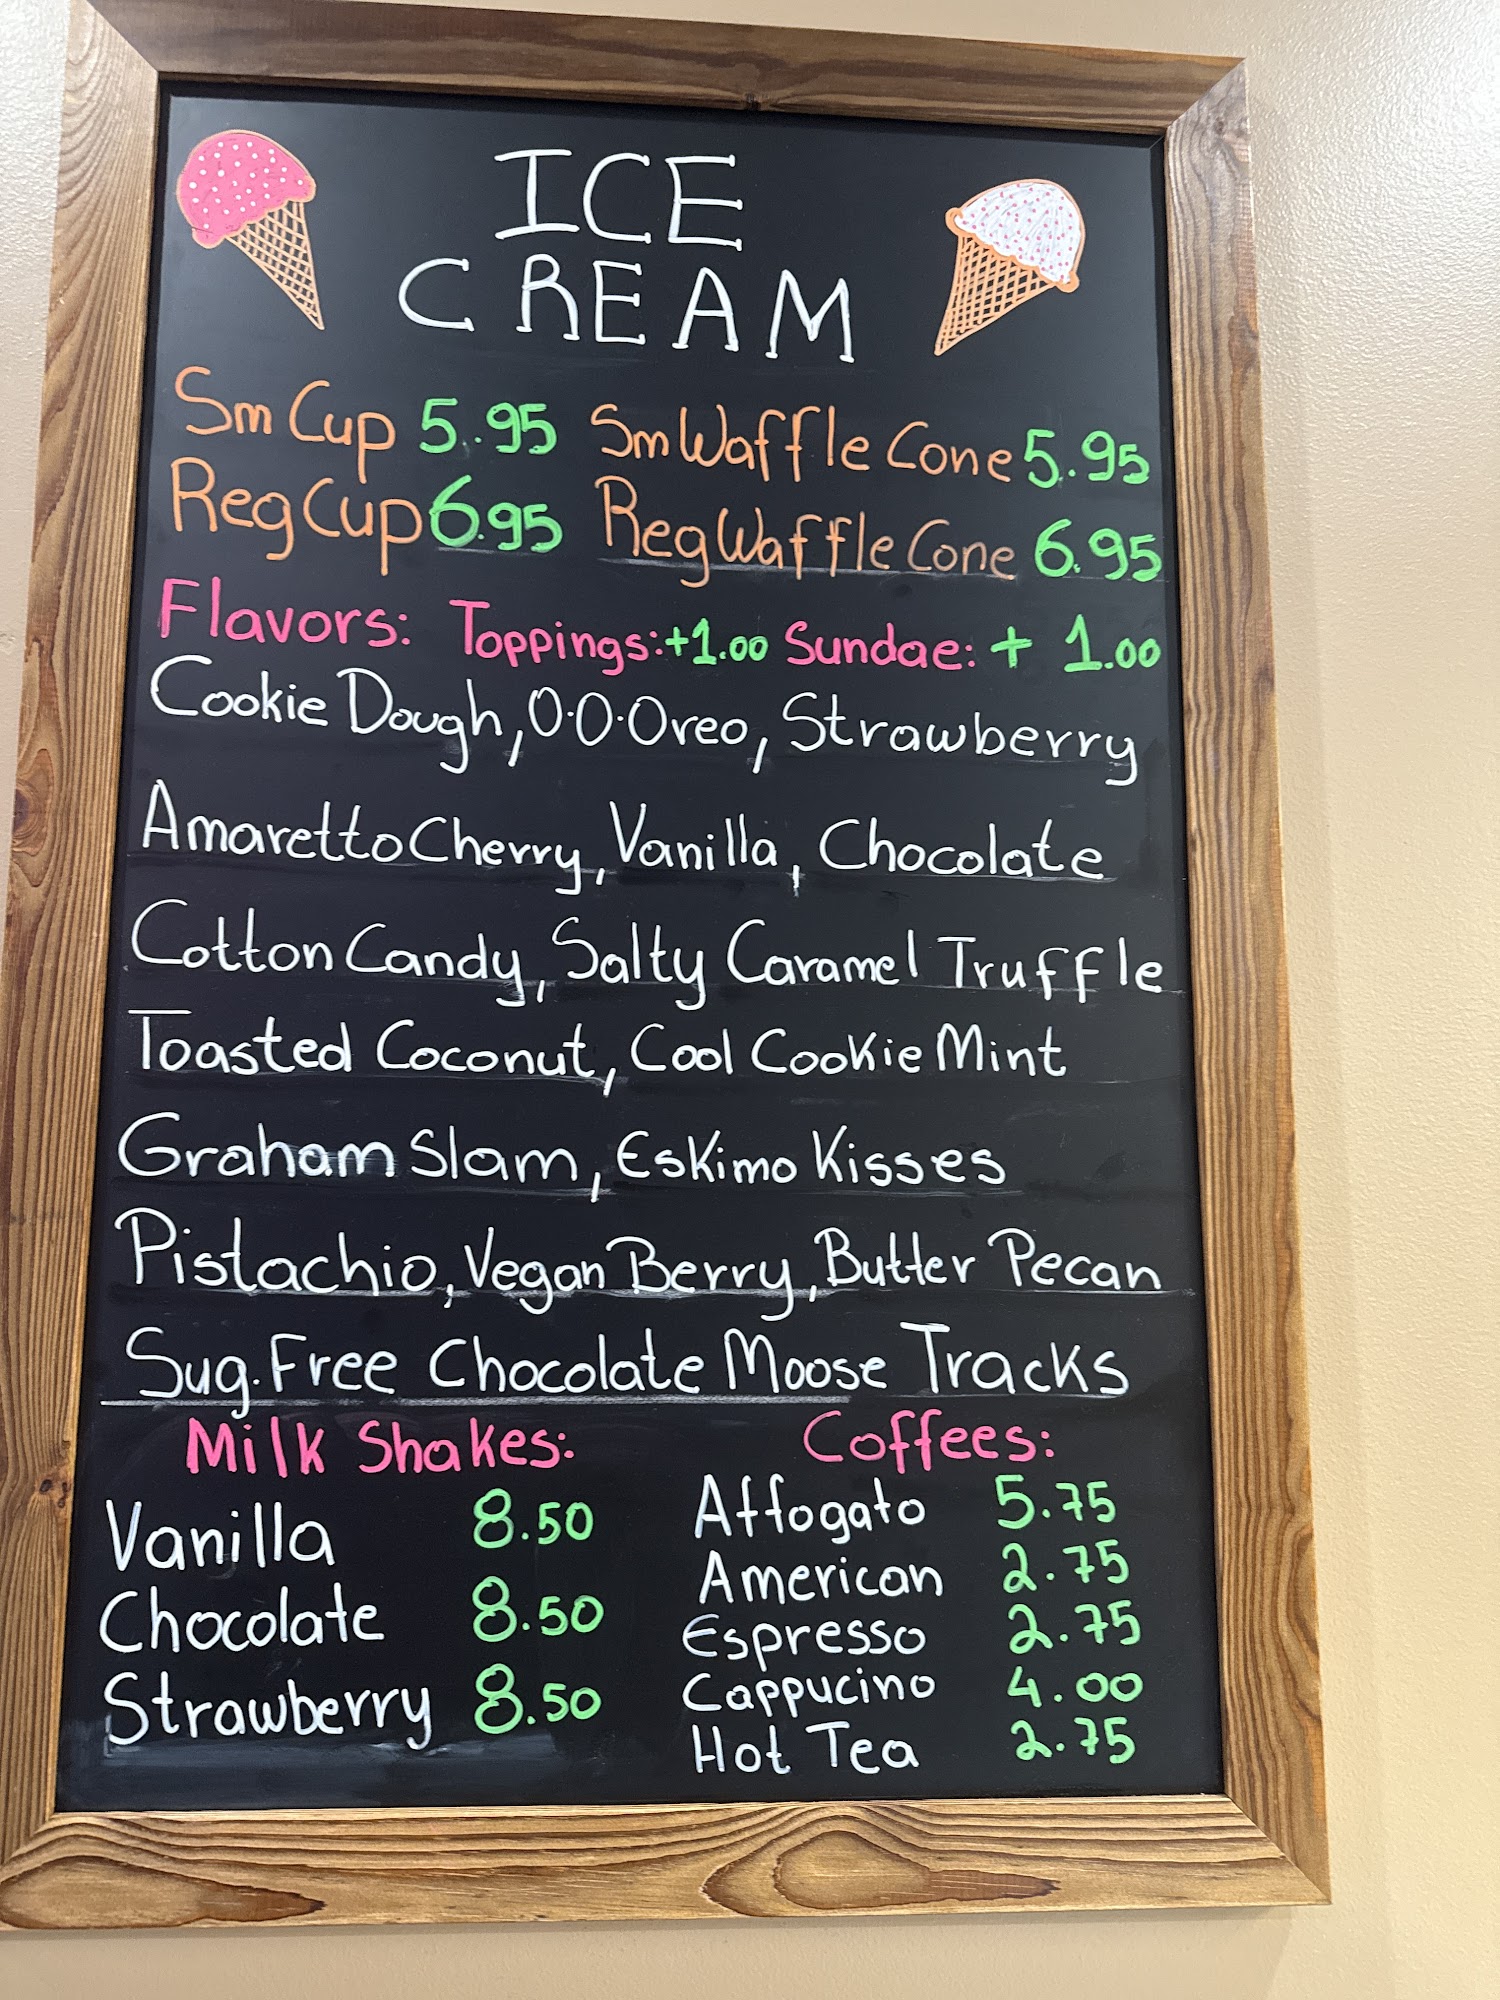 ICE
CREAM
Sm Cup 5.95 Sm Waffle Cone 5.95
Reg Cup 6.95 Reg Waffle Cone 6.95
Flavors: Toppings:+1.00 Sundae: + 1.00
Cookie Dough, O·O·Oreo, Strawberry
Amaretto Cherry, Vanilla, Chocolate
Cotton Candy, Salty Caramel Truffle
Toasted Coconut, Cool Cookie Mint
Graham Slam, Eskimo Kisses
Pistachio, Vegan Berry, Butter Pecan
Sug. Free Chocolate Moose Tracks
Milk Shakes: Coffees:
Vanilla 8.50 Affogato 5.75
American 2.75
Chocolate 8.50 Espresso 2.75
Strawberry 8.50 Cappucino 4.00
Hot Tea 2.75